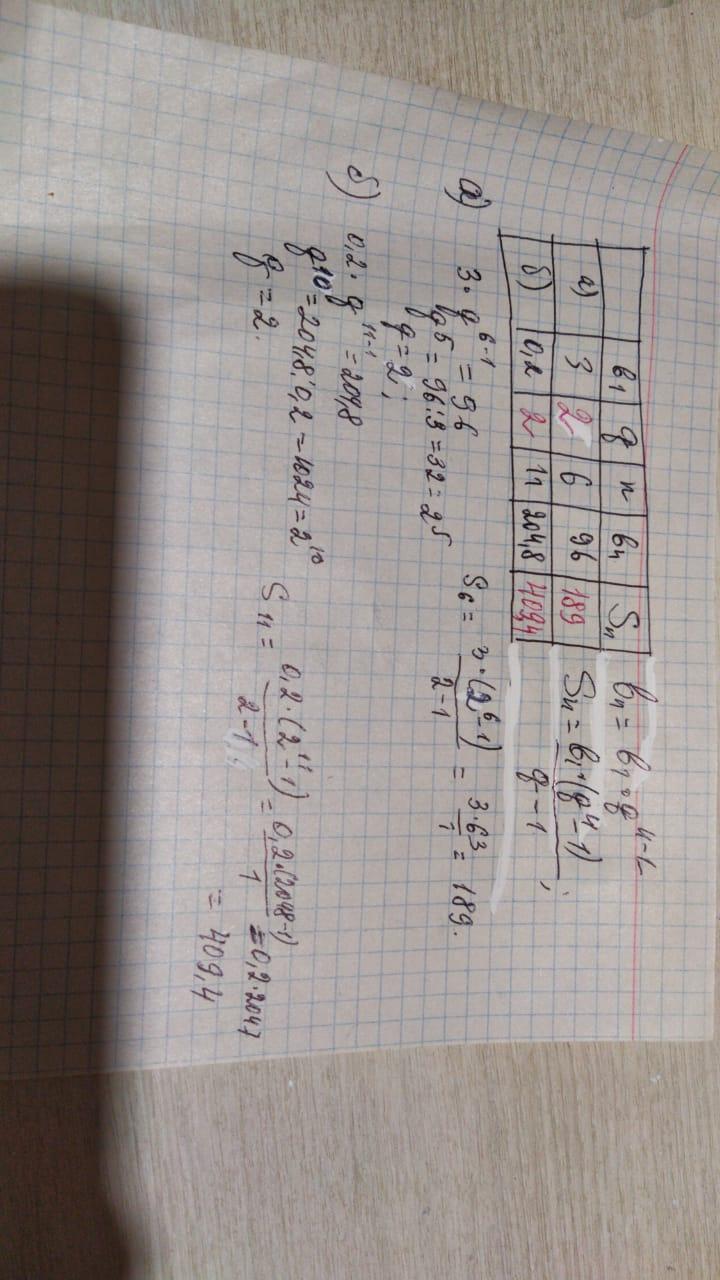 b₁ q n bₙ Sₙ
а) 3 2 6 96 189
б) 0,2 2 11 204,8 409,4
bₙ = b₁ · qⁿ⁻¹
Sₙ = b₁·(qⁿ-1) / q-1 ;
а) 3 · q⁶⁻¹ = 96
q⁵ = 96:3 = 32 = 2⁵
q = 2;
S₆ = 3·(2⁶-1) / 2-1 = 3·63 / 1 = 189.
б) 0,2 · q¹¹⁻¹ = 204,8
q¹⁰ = 204,8:0,2 = 1024 = 2¹⁰
q = 2.
S₁₁ = 0,2·(2¹¹-1) / 2-1 = 0,2·(2048-1) / 1 = 0,2·2047
= 409,4